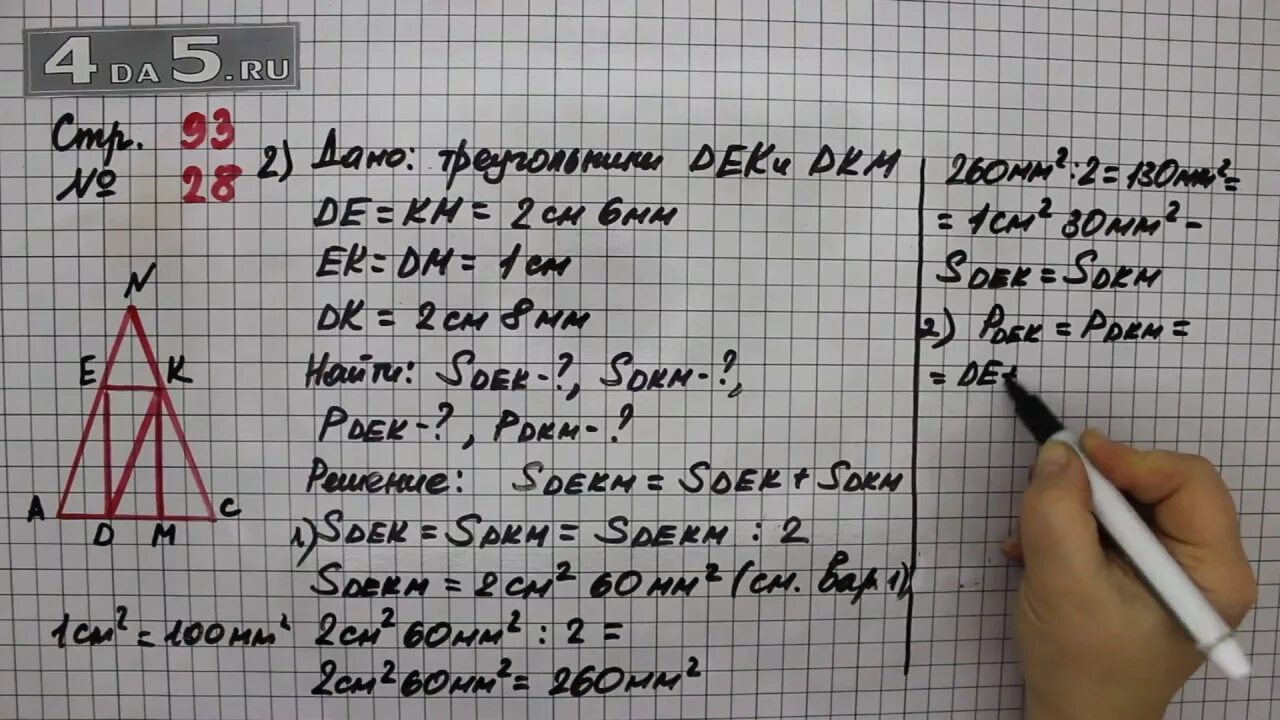 4DA5.RU
Стр. 93
№ 28
2) Дано: треугольники DEK и DKM
DE = KM = 2 см 6 мм
EK = DM = 1 см
DK = 2 см 8 мм
Найти: SDEK-?, SDKM-?,
PDEK-?, PDKM-?
Решение: SDEKM = SDEK + SDKM
1) SDEK = SDKM = SDEKM : 2
SDEKM = 2 см² 60 мм² (см. вар 1)
1 см² = 100 мм²
2 см² 60 мм² : 2 =
2 см² 60 мм² = 260 мм²
N
E K
A D M C
260 мм² : 2 = 130 мм² =
= 1 см² 30 мм² -
SDEK = SDKM
2) PDEK = PDKM =
= DE+